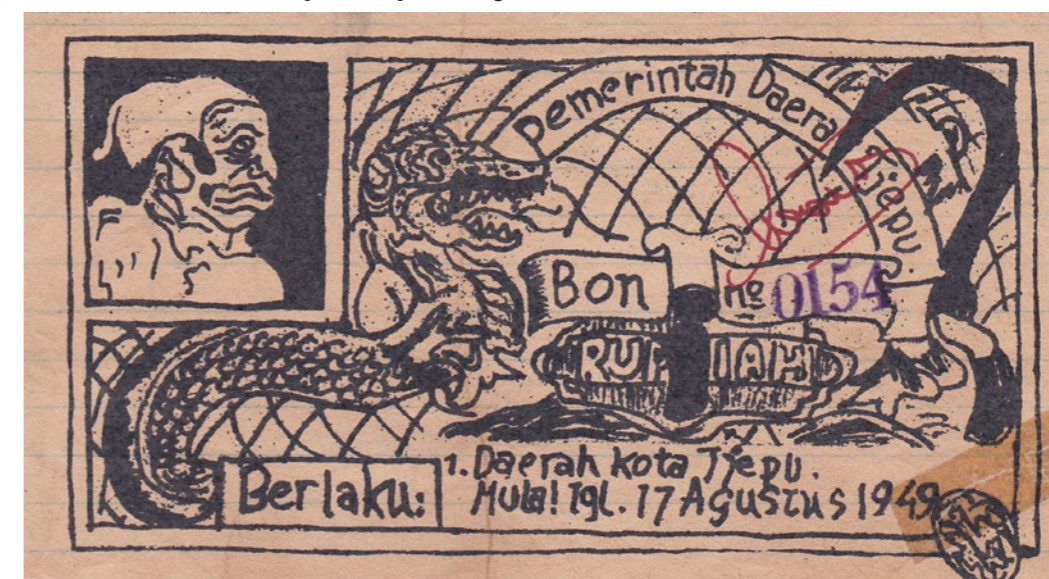 Pemerintah Daera
Tjepu.
Bon
no 0154
1
RUPIAH
Berlaku:
1. Daerah kota Tjepu.
Mulai Tgl. 17 Agustus 1949